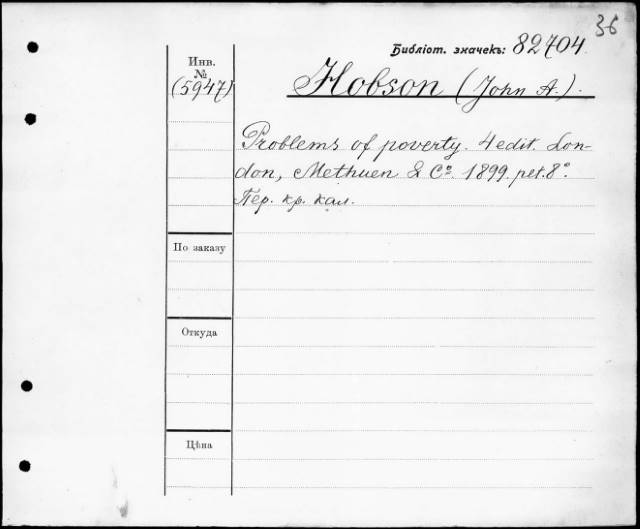 36
Библіот. значекъ: 82704.
Инв.
№
(5947)
Hobson (John A.).
Problems of poverty. 4 edit. Lon-
don, Methuen & Cº. 1899. pet. 8º.
Пер. кр. кал.
По заказу
Откуда
Цѣна